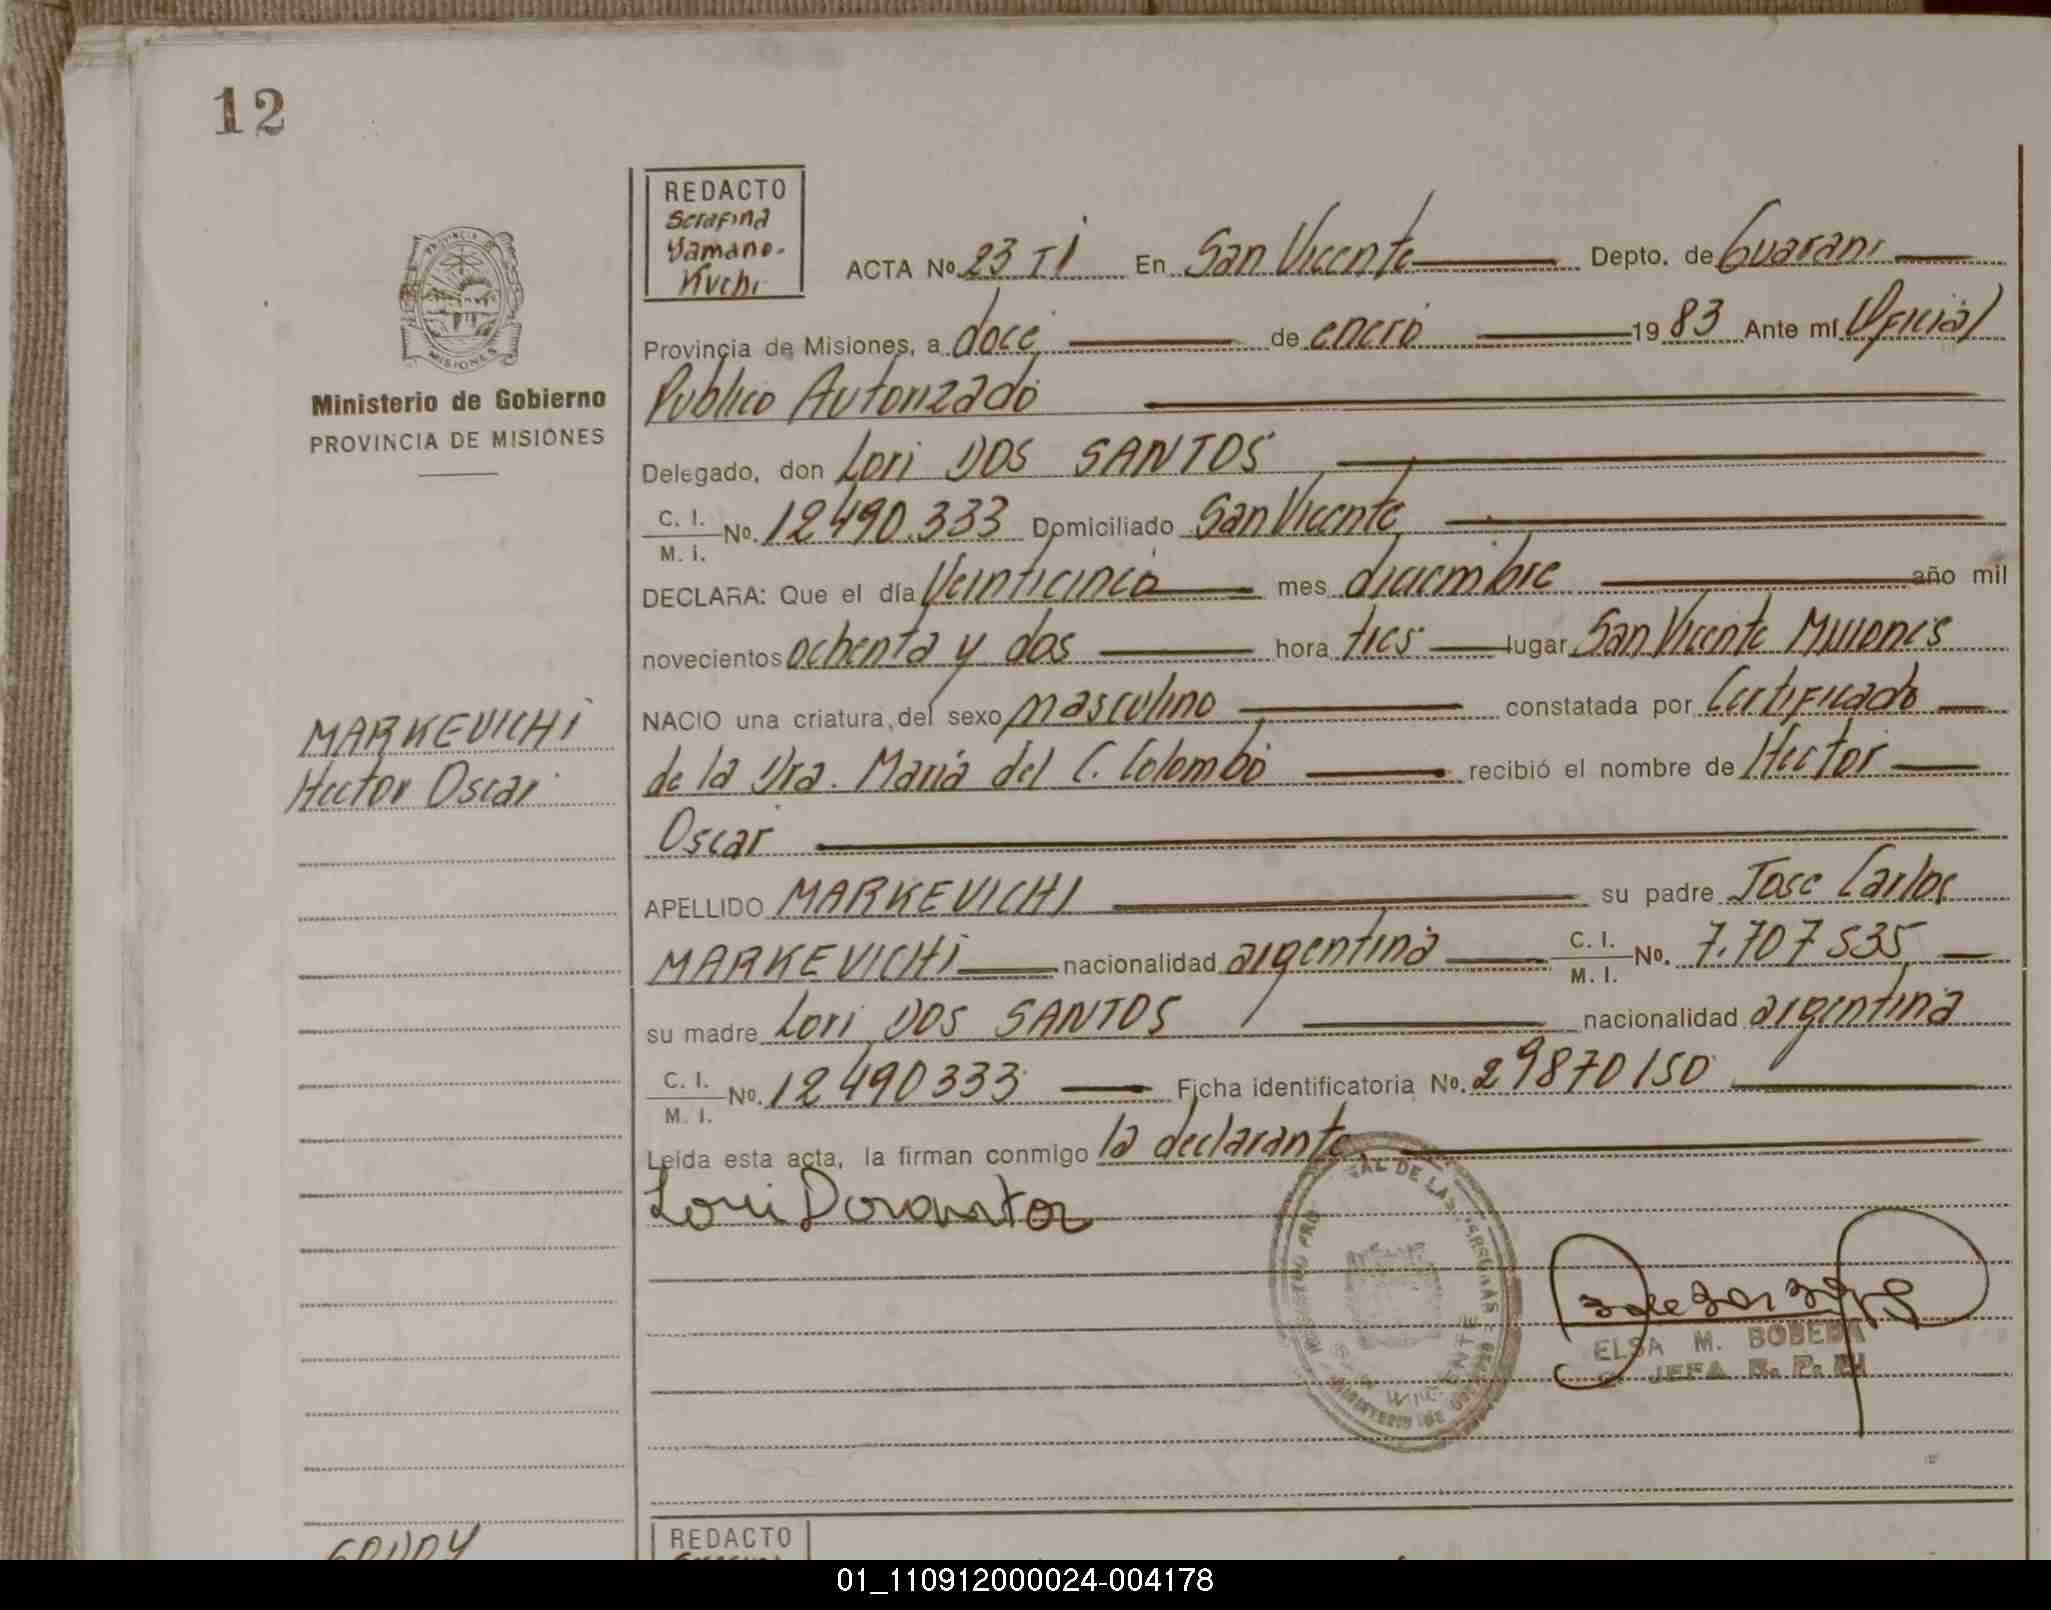 12
REDACTO
Serafina
Yamano-
Kuchi
ACTA No 23 TI En San Vicente Depto. de Guarani
Provincia de Misiones, a doce de enero 1983 Ante mí Oficial
Publico Autorizado
Ministerio de Gobierno
PROVINCIA DE MISIONES
Delegado, don Lori DOS SANTOS
C. I. M. I. No. 12490.333 Domiciliado San Vicente
DECLARA: Que el día Veinticinco mes diciembre año mil
novecientos ochenta y dos hora tres lugar San Vicente Misiones
NACIO una criatura, del sexo masculino constatada por Certificado
MARKEVICHI
Hector Oscar
de la Dra. Maria del C. Colombo recibió el nombre de Hector
Oscar
APELLIDO MARKEVICHI su padre Jose Carlos
MARKEVICHI nacionalidad argentina C. I. M. I. No. 7.707535
su madre Lori DOS SANTOS nacionalidad argentina
C. I. M. I. No. 12490333 Ficha identificatoria No. 29870150
Leida esta acta, la firman conmigo la declarante
Lori Dosantos
SAN VICENTE
ELSA M. BOBEDA
JEFA R. P.
REDACTO
01_110912000024-004178